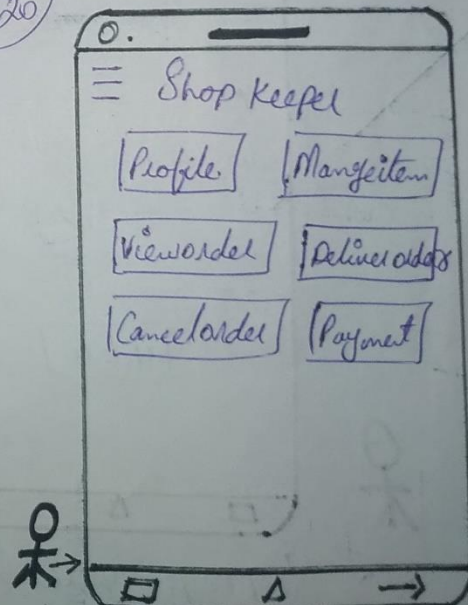 20
Shop Keeper
Profile Mangeitem
Vieworder Deliverorders
Cancelorder Payment